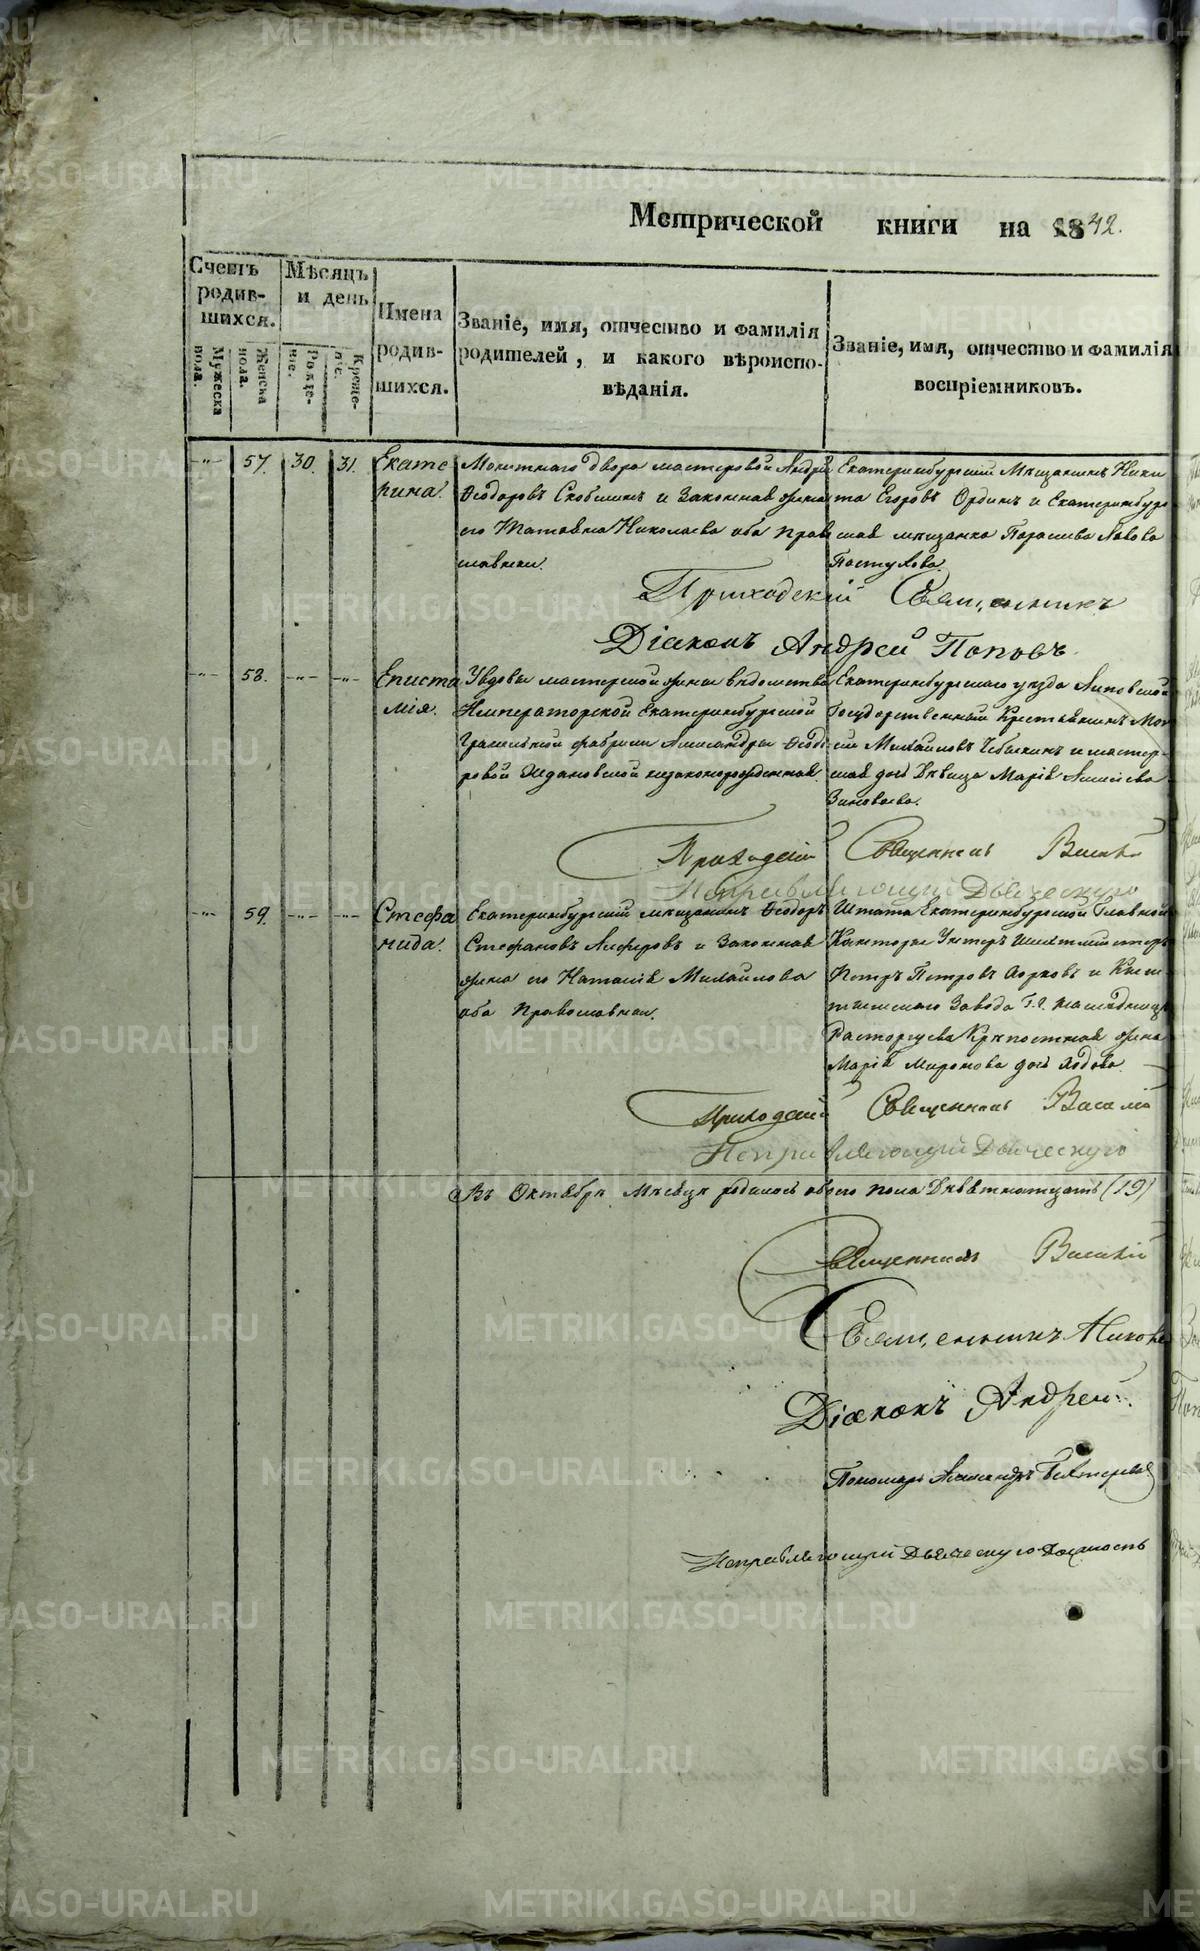 Метрической книги на 1842.
Счетъ родив-шихся.
Мужеска пола.
Женска пола.
Мѣсяцъ и день
Рожде-ніе.
Креще-ніе.
Имена родив-шихся.
Званіе, имя, отчество и фамилія
родителей, и какого вѣроиспо-
вѣданія.
Званіе, имя, отчество и фамилія
воспріемниковъ.
57. 30. 31.
Екате
рина.
Монетнаго двора мастеровой Андрей
Ѳеодоровъ и Законная жена
его Татьяна Николаева оба право
славныи.
Екатеринбургскій Мѣщанинъ Ники
та Егоровъ Ординъ и Екатеринбург
ская мѣщанка Параскева Львова
Пастухова.
Приходскій Священникъ
Діаконъ Андрей Поповъ
58.
Еписти
мія.
У вдовы мастерской жены вѣдомства
Императорской Екатеринбургской
Гранильной фабрики Александры Ѳеодо
ровой Ждановской незаконорожденная
Екатеринбургскаго уѣзда
Государственный Крестьянинъ
Михайловъ и мастер
ская дочь Дѣвица Марія
Зиновьева.
Приходскій Священникъ Василій
Исправляющій Дьяческую
59.
Стефа
нида.
Екатеринбургскій мѣщанинъ Ѳеодоръ
Стефановъ и Законная
жена его Наталія Михайлова
оба Православныи.
Штата Екатеринбургской Главной
Конторы Унтеръ Шихтмейстеръ
Петръ Петровъ и Кыш
тымскаго Завода Г.г. наслѣдниц
Расторгуева Крѣпостная жена
Марія Миронова дочь
Приходскій Священникъ Василій
Исправляющій Дьяческую
Въ Октябрѣ Мѣсяцѣ родилось обоего пола Девятнатцать (19)
Священникъ Василій
Священникъ
Діаконъ Андрей
Пономарь Александръ
Исправляющій Дьяческую Должность
METRIKI.GASO-URAL.RU